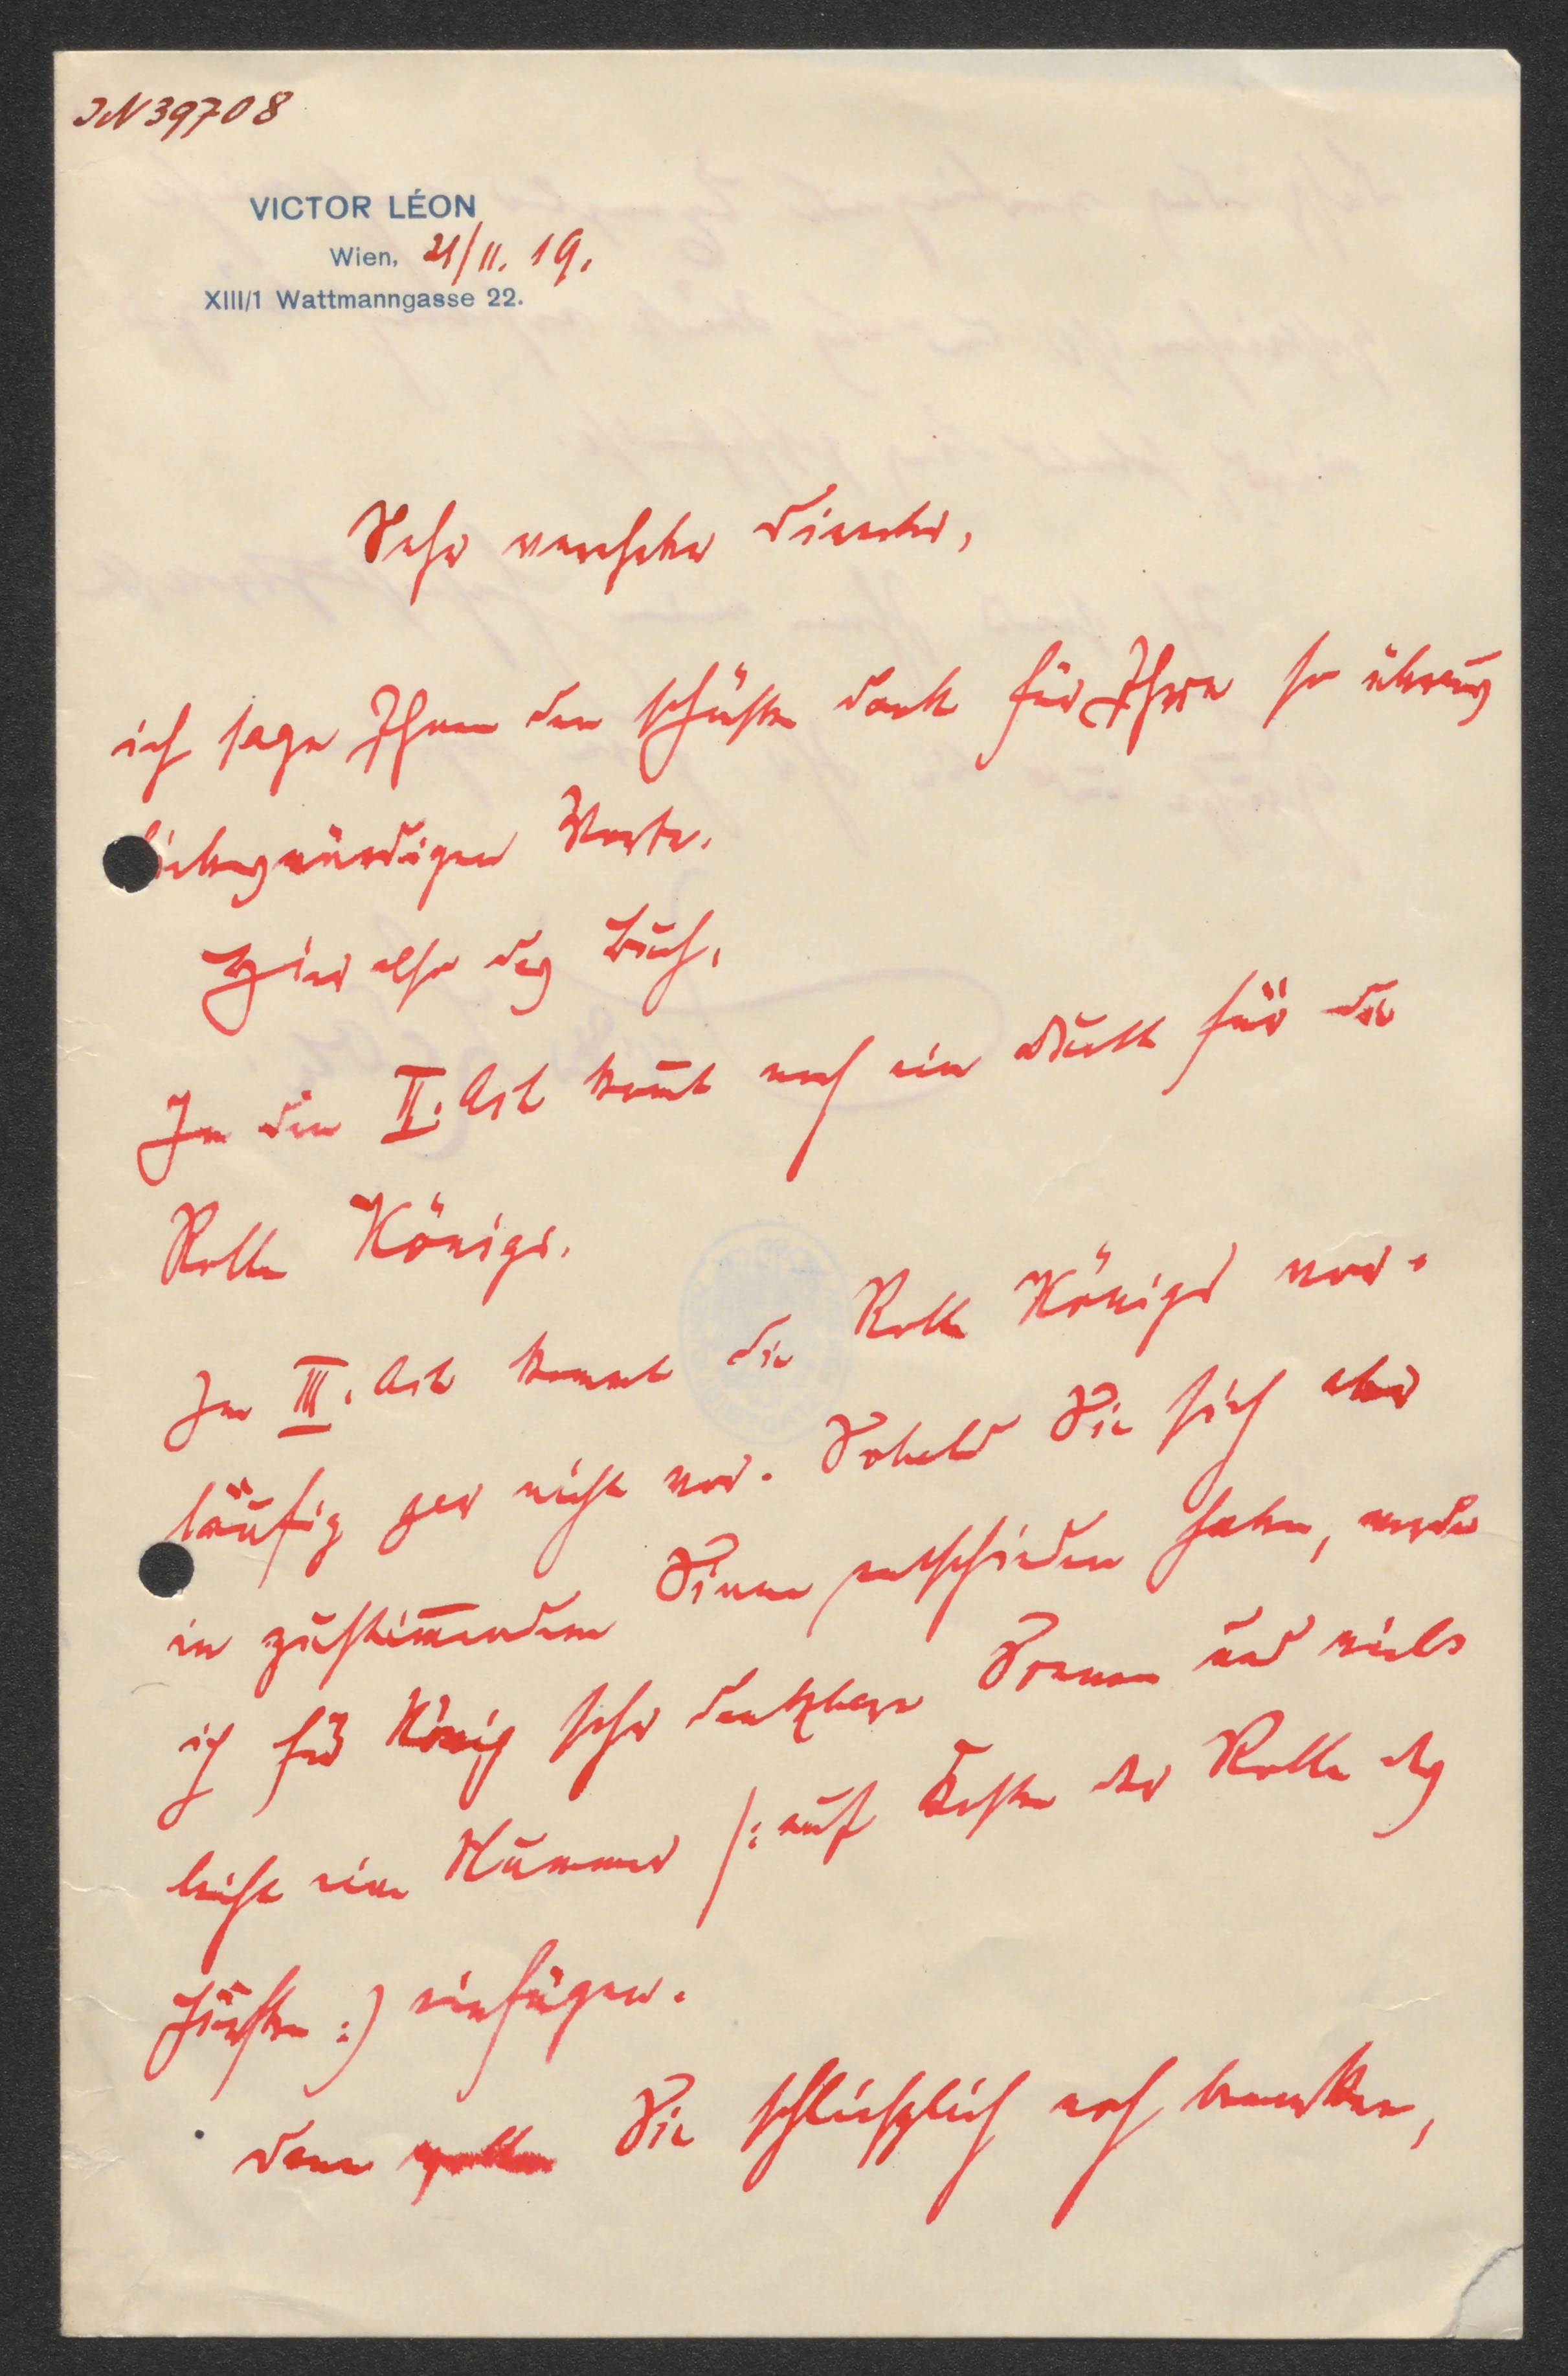 JN 39708
VICTOR LÉON
Wien, 21/II. 19.
XIII/1 Wattmanngasse 22.
Sehr verehrter Director,
ich sage Ihnen den schönsten Dank für Ihre so überaus
liebenswürdigen Worte.
Hier also das Buch.
In den II. Act kommt noch ein Duett für die
Rolle Königs.
Im III. Act kommt die Rolle Königs vor-
läufig gar nicht vor. Sobald Sie sich aber
in zustim̅endem Sinne entschieden haben, werde
ich für König sehr dankbare Scenen und viel-
leicht eine Nummer /: auf Kosten der Rolle des
Fürsten :) einfügen.
Denn Sie schließlich noch bemerken,